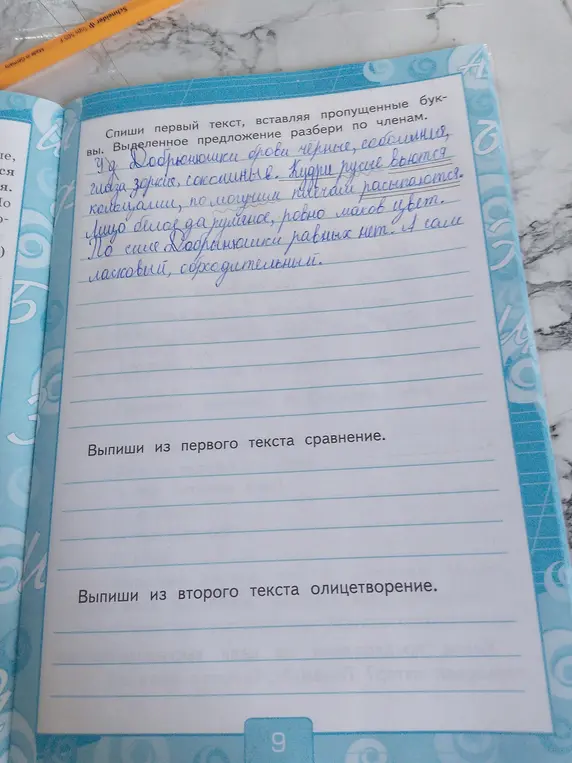 Schneider
Made in Germany
ше,
ся
я.
По
о-
)
Спиши первый текст, вставляя пропущенные бук-
вы. Выделенное предложение разбери по членам.
У Добрынюшки брови чёрные, соболиные,
глаза зоркие, соколиные. Кудри русые вьются
кольцами, по могучим плечам рассыпаются.
Лицо белое да румяное, ровно маков цвет.
По силе Добрынюшки равных нет. А сам
ласковый, обходительный.
Выпиши из первого текста сравнение.
Выпиши из второго текста олицетворение.
9